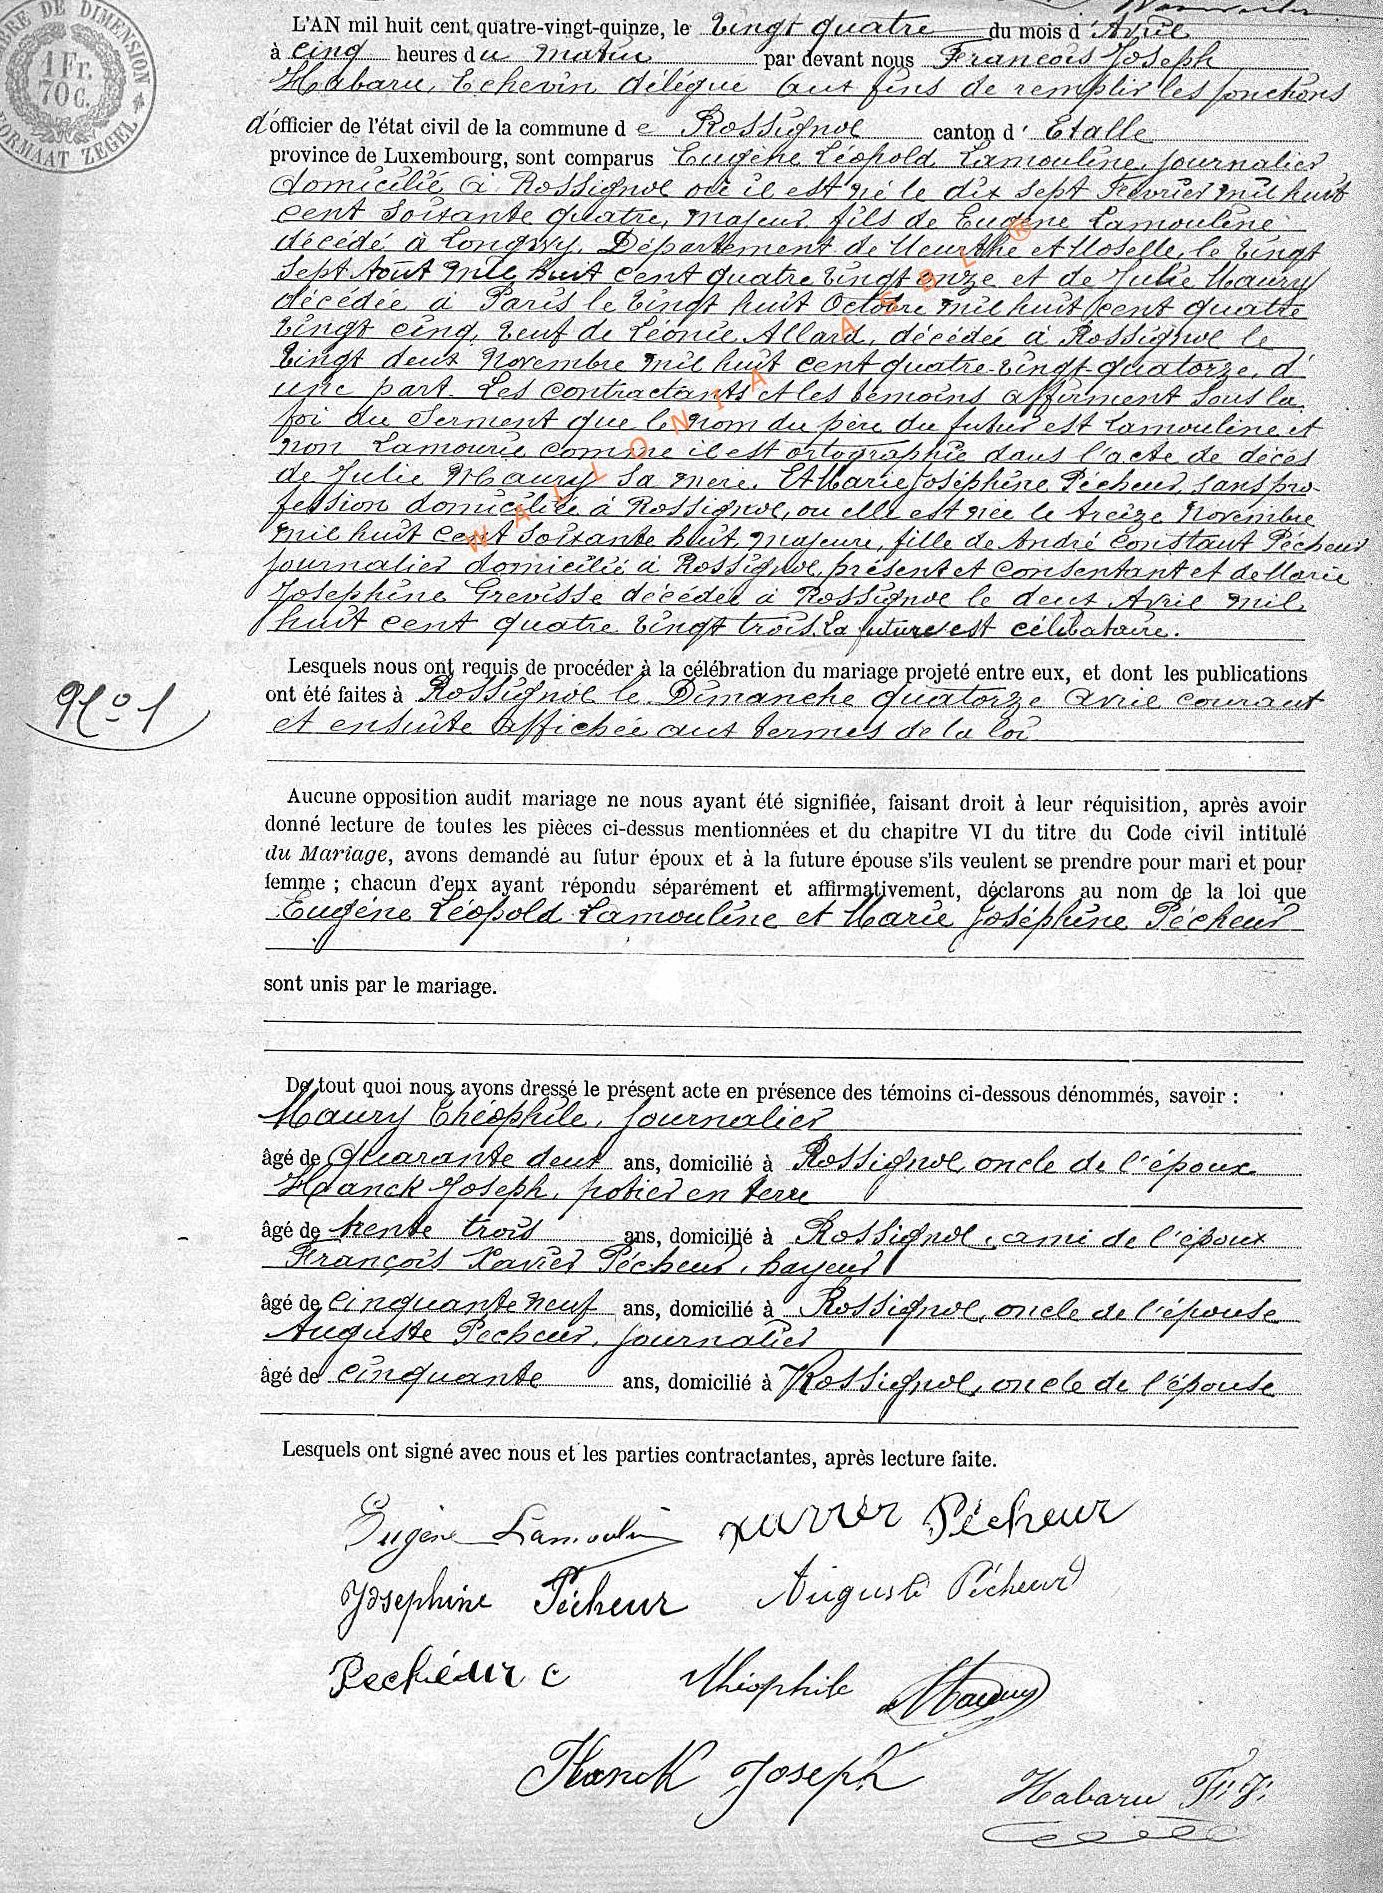 RE DE DIMENSION
1 Fr.
70 c.
FORMAAT ZEGEL
L'AN mil huit cent quatre-vingt-quinze, le vingt quatre du mois d'Avril
à cinq heures du matin par devant nous Francois Joseph
Habaru, Echevin délégue aux fins de remplir les fonctions
d'officier de l'état civil de la commune de Rossignol canton d' Etalle
province de Luxembourg, sont comparus Eugène Léopold Lamouline, journalier
domicilié à Rossignol où il est né le dix sept Fevrier mil huit
cent soixante quatre, majeur, fils de Eugène Lamouline
décédé à Longwy, Département de Meurthe et Moselle, le vingt
sept Août mil huit cent quatre vingt onze et de Julie Maury
décédée à Paris le vingt huit Octobre mil huit cent quatre
vingt cinq, veuf de Léonie Allard, décédée à Rossignol le
vingt deux Novembre mil huit cent quatre-vingt-quatorze, d'
une part. Les contractants et les témoins affirment sous la
foi du serment que le nom du père du futur est Lamouline et
non Lamourie comme il est ortographié dans l'acte de décès
de Julie Maury sa mère. Et Marie Joséphine Pécheur, sans pro-
fession domiciliée à Rossignol, ou elle est née le treize Novembre
mil huit cent soixante huit, majeure, fille de André Constant Pécheur
journalier domicilié à Rossignol, présent et consentant et de Marie
Josephine Grevisse décédée à Rossignol le deux Avril mil
huit cent quatre vingt trois. La future est célibataire.
Lesquels nous ont requis de procéder à la célébration du mariage projeté entre eux, et dont les publications
ont été faites à Rossignol le Dimanche quatorze avril courant
et ensuite affichée aux termes de la loi
No 1
Aucune opposition audit mariage ne nous ayant été signifiée, faisant droit à leur réquisition, après avoir
donné lecture de toutes les pièces ci-dessus mentionnées et du chapitre VI du titre du Code civil intitulé
du Mariage, avons demandé au futur époux et à la future épouse s'ils veulent se prendre pour mari et pour
femme ; chacun d'eux ayant répondu séparément et affirmativement, déclarons au nom de la loi que
Eugéne Léopold Lamouline et Marie Joséphine Pécheur
sont unis par le mariage.
De tout quoi nous avons dressé le présent acte en présence des témoins ci-dessous dénommés, savoir :
Maury Théophile, journalier
âgé de quarante deux ans, domicilié à Rossignol, oncle de l'époux
Hanck Joseph, potier en terre
âgé de trente trois ans, domicilié à Rossignol, ami de l'époux
François Xavier Pécheur, hayeur
âgé de cinquante neuf ans, domicilié à Rossignol, oncle de l'épouse
Auguste Pecheur, journalier
âgé de cinquante ans, domicilié à Rossignol, oncle de l'épouse
Lesquels ont signé avec nous et les parties contractantes, après lecture faite.
Eugène Lamoulin xavier Pécheur
Josephine Pécheur Auguste Pécheur
Pechéur c Théophile Maury
Hanck Joseph
Habaru F. J.
WALLONIA ASBL ®